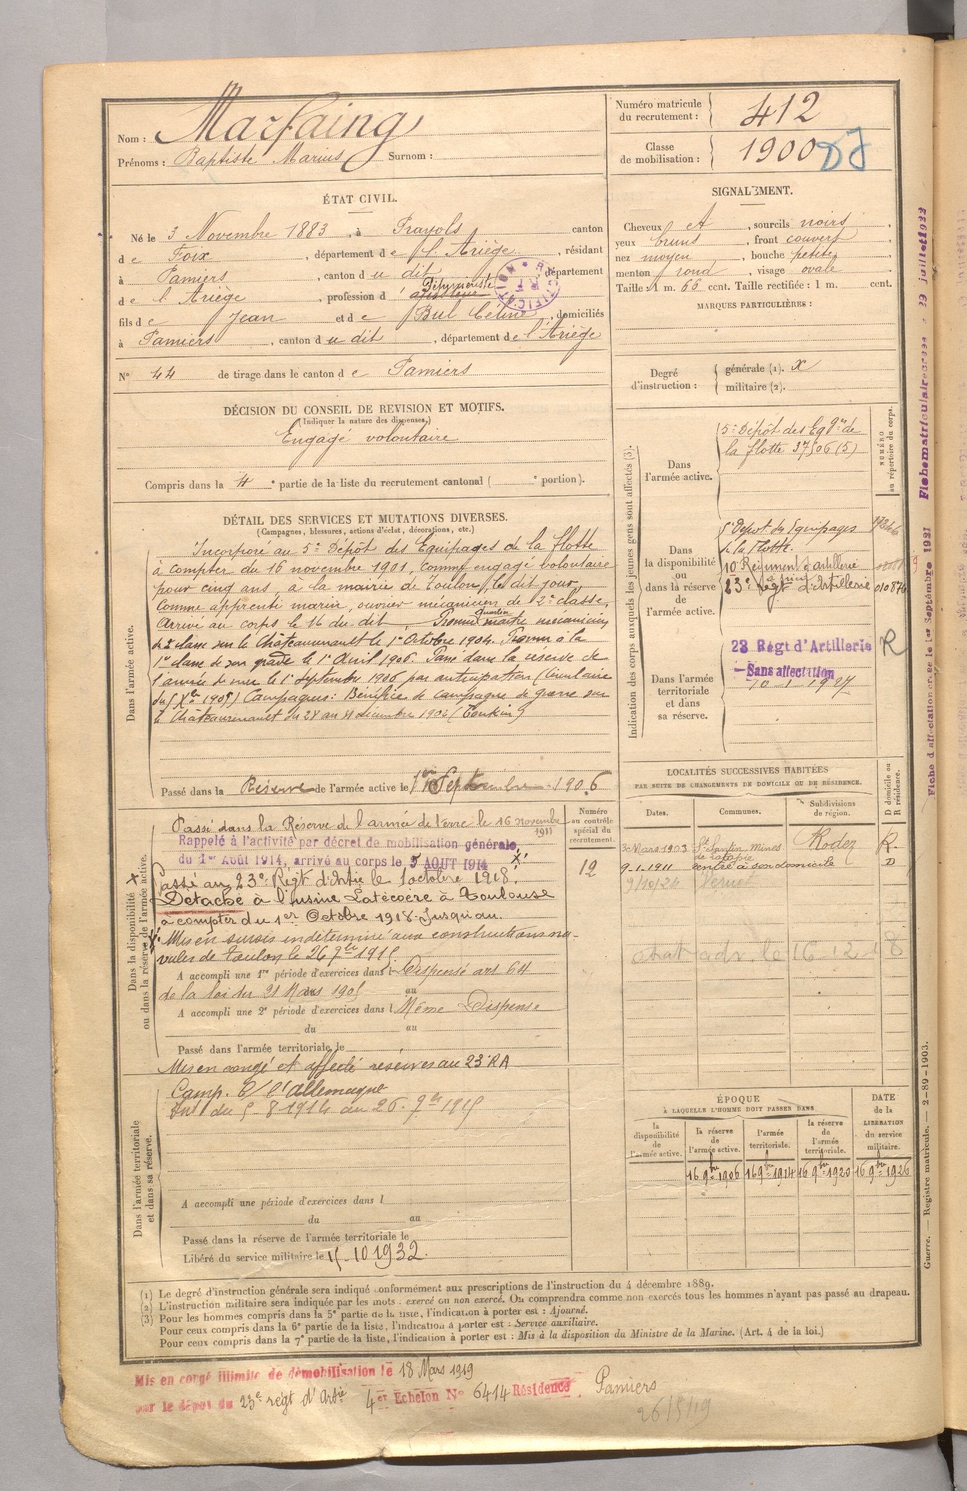 Nom : Marfaing
Prénoms : Baptiste Marius Surnom :
Numéro matricule du recrutement : 412
Classe de mobilisation : 1900
ÉTAT CIVIL.
Né le 3 Novembre 1883, à Prayols canton
de Foix, département de l'Ariège, résidant
à Pamiers, canton du dit, département
de l'Ariège, profession d'
fils de Jean et de Bul Céline, domiciliés
à Pamiers, canton du dit, département de l'Ariège
N° 44 de tirage dans le canton de Pamiers
SIGNALEMENT.
Cheveux , sourcils noirs
yeux bruns, front couvert
nez moyen, bouche petite
menton rond, visage ovale
Taille : 1 m. 66 cent. Taille rectifiée : 1 m. cent.
MARQUES PARTICULIÈRES :
Degré d'instruction : générale (1). x
militaire (2).
DÉCISION DU CONSEIL DE REVISION ET MOTIFS.
(Indiquer la nature des dispenses.)
Engagé volontaire
Compris dans la 4e partie de la liste du recrutement cantonal ( e portion).
DÉTAIL DES SERVICES ET MUTATIONS DIVERSES.
(Campagnes, blessures, actions d'éclat, décorations, etc.)
Dans l'armée active.
Incorporé au 5e Dépôt des Équipages de la flotte
à compter du 16 novembre 1901, comme engagé volontaire
pour cinq ans, à la mairie de Toulon, le dit jour,
comme apprenti marin, ouvrier mécanicien de 2e classe,
Arrivé au corps le 16 du dit. Promu quartier maître mécanicien
de 2e classe sur le Châteaurenault le 1er Octobre 1904. Promu à la
1re classe de son grade le 1er Avril 1906. Passé dans la réserve de
l'armée de mer le 1er Septembre 1906 par anticipation (Circulaire
du Xbre 1905) Campagnes : Bénéfice de campagne de guerre sur
le Châteaurenault du 28 au 31 décembre 1902 (Tonkin)
Passé dans la Réserve de l'armée active le 1er Septembre 1906
Indication des corps auxquels les jeunes gens sont affectés (3).
NUMÉRO au répertoire du corps.
Dans l'armée active.
5e Dépôt des Eqges de
la flotte 37506 (5)
Dans la disponibilité ou dans la réserve de l'armée active.
5e Dépôt des Equipages
de la Flotte.
10e Régiment d'artillerie
23e Régt d'Artillerie
Dans l'armée territoriale et dans sa réserve.
23 Régt d'Artillerie R
Sans affectation
LOCALITÉS SUCCESSIVES HABITÉES
PAR SUITE DE CHANGEMENTS DE DOMICILE OU DE RÉSIDENCE.
Dates. Communes. Subdivisions de région. D domicile ou R résidence.
Mars 1903 Rodez R
9-1-1911 rentré à son domicile D
9/10/24
Dans la disponibilité ou dans la réserve de l'armée active.
Numéro au contrôle spécial du recrutement.
12
Passé dans la Réserve de l'armée de terre le 16 novembre 1911
Rappelé à l'activité par décret de mobilisation générale,
du 1er Août 1914, arrivé au corps le 5 AOUT 1914
Passé au 23e Régt d'Artie le 1 octobre 1918.
Détaché à l'usine Latécoère à Toulouse
à compter du 1er Octobre 1918 Jusqu'au.
Mis en sursis indéterminé aux constructions na-
vales de Toulon le 26 7bre 1915
A accompli une 1re période d'exercices dans l Dispensé art 64
de la loi du 21 Mars 1905 au
A accompli une 2e période d'exercices dans l Même Dispense
du au
Passé dans l'armée territoriale le
Mis en congé et affecté réserves au 23 RA
Dans l'armée territoriale et dans sa réserve.
Camp. C/ l'Allemagne
Int du 5-8-1914 au 26-7bre 1915
A accompli une période d'exercices dans l
du au
Passé dans la réserve de l'armée territoriale le
Libéré du service militaire le 15-10 1932.
ÉPOQUE
À LAQUELLE L'HOMME DOIT PASSER DANS
la disponibilité de l'armée active. la réserve de l'armée active. l'armée territoriale. la réserve de l'armée territoriale. DATE de la LIBÉRATION du service militaire.
16 9bre 1906 16 9bre 1914 16 9bre 1920 16 9bre 1926
(1) Le degré d'instruction générale sera indiqué conformément aux prescriptions de l'instruction du 4 décembre 1889.
(2) L'instruction militaire sera indiquée par les mots : exercé ou non exercé. On comprendra comme non exercés tous les hommes n'ayant pas passé au drapeau.
(3) Pour les hommes compris dans la 5e partie de la liste, l'indication à porter est : Ajourné.
Pour ceux compris dans la 6e partie de la liste, l'indication à porter est : Service auxiliaire.
Pour ceux compris dans la 7e partie de la liste, l'indication à porter est : Mis à la disposition du Ministre de la Marine. (Art. 4 de la loi.)
Mis en congé illimité de démobilisation le 18 Mars 1919
par le dépôt du 23e régt d'Artie 4e Echelon N° 6414 Résidence Pamiers
26/5/19
Guerre. — Registre matricule. — 2-89-1903.